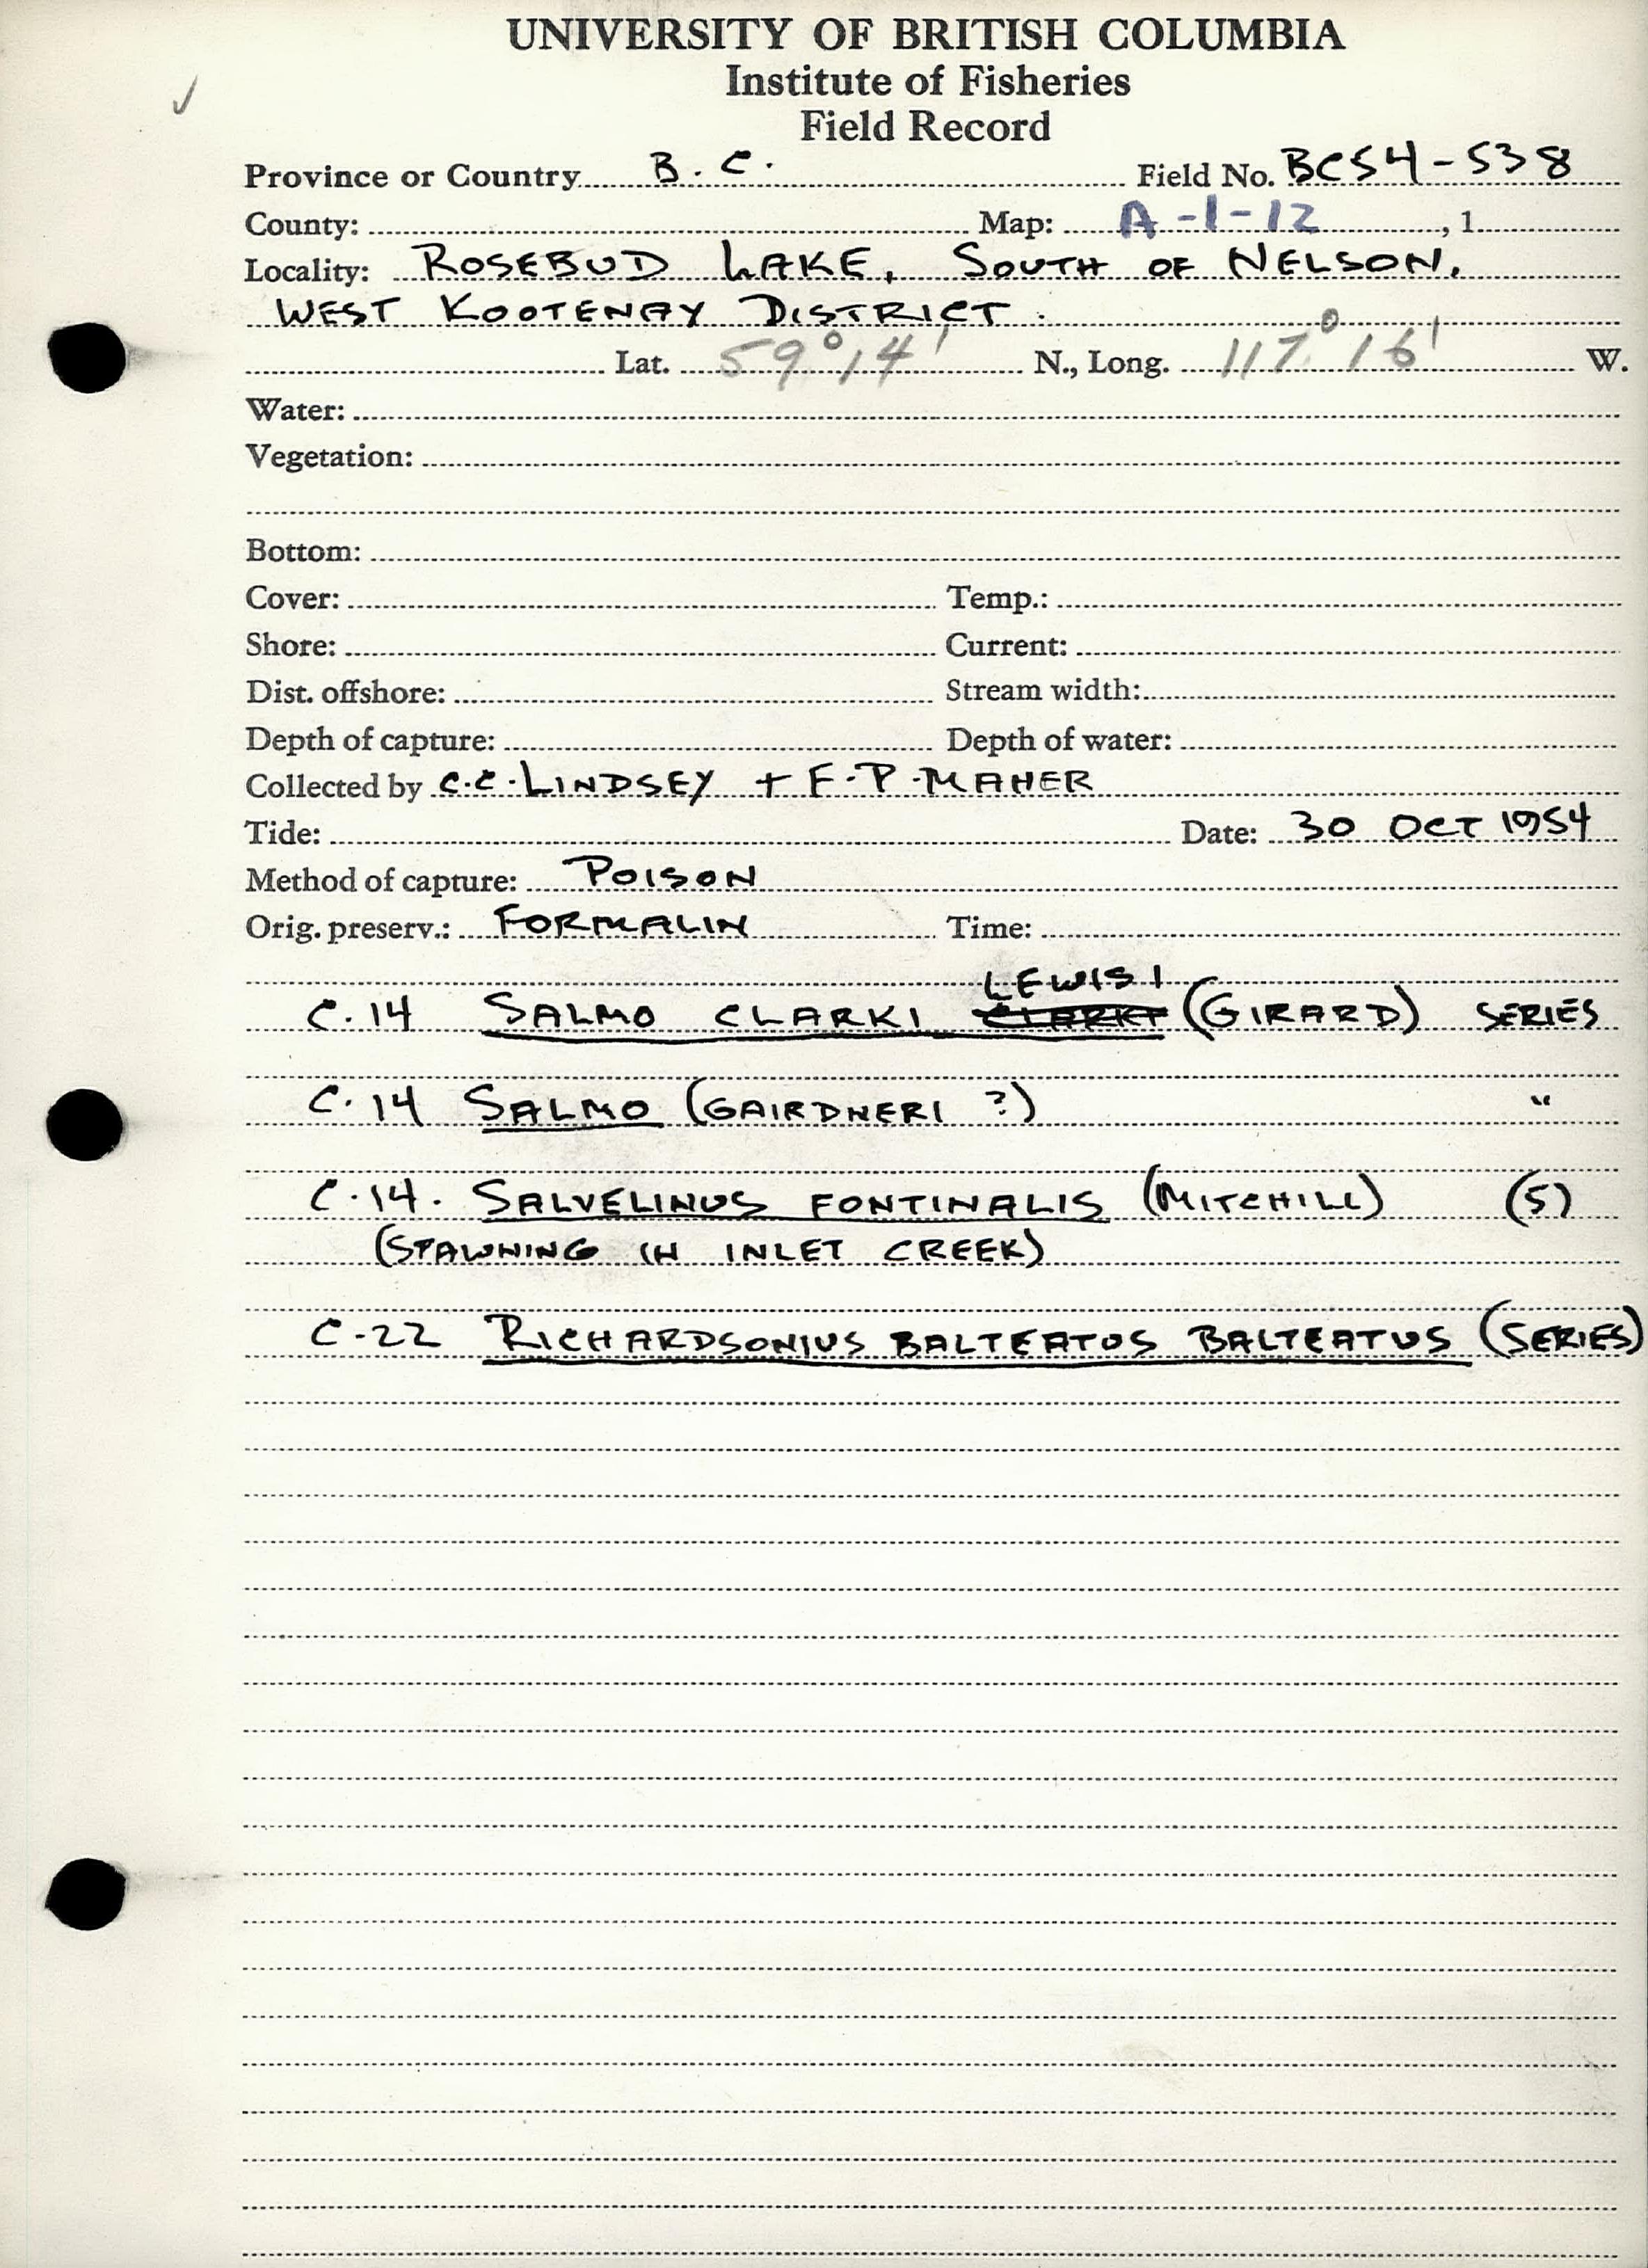 ✓
UNIVERSITY OF BRITISH COLUMBIA
Institute of Fisheries
Field Record
Province or Country B.C. Field No. BC54-538
County: Map: A-1-12, 1
Locality: ROSEBUD LAKE, SOUTH OF NELSON,
WEST KOOTENAY DISTRICT.
Lat. 59°14' N., Long. 117°16' W.
Water:
Vegetation:
Bottom:
Cover: Temp.:
Shore: Current:
Dist. offshore: Stream width:
Depth of capture: Depth of water:
Collected by C.C. LINDSEY + F.P. MAHER
Tide: Date: 30 OCT 1954
Method of capture: POISON
Orig. preserv.: FORMALIN Time:
LEWISI
C.14 SALMO CLARKI CLARKI (GIRARD) SERIES
C.14 SALMO (GAIRDNERI ?) "
C.14. SALVELINUS FONTINALIS (MITCHILL) (5)
(SPAWNING IN INLET CREEK)
C-22 RICHARDSONIUS BALTEATUS BALTEATUS (SERIES)